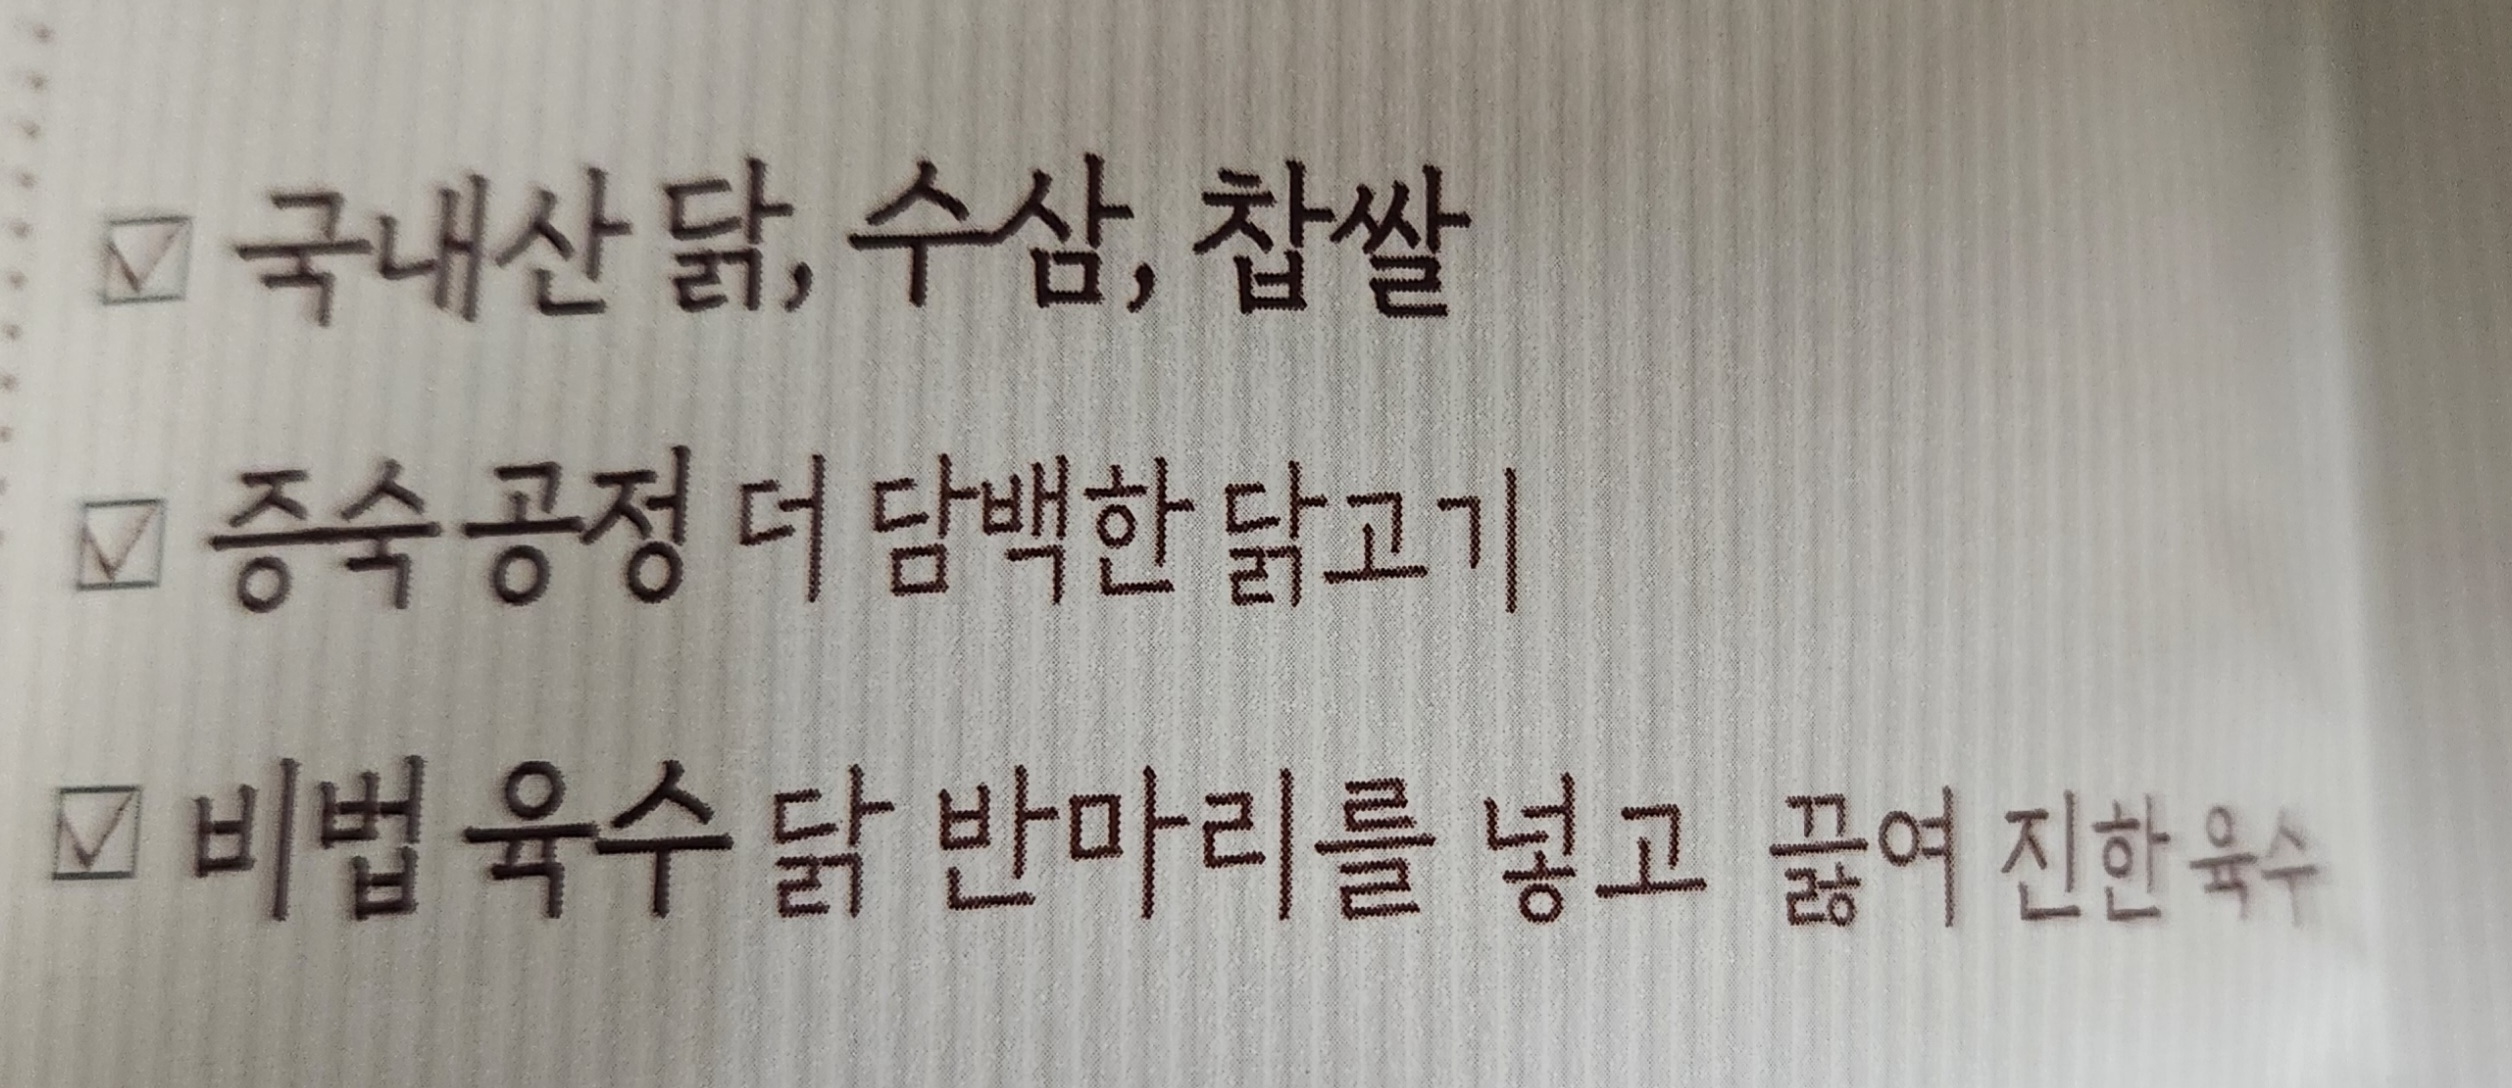 ☑ 국내산 닭, 수삼, 찹쌀
☑ 증숙 공정 더 담백한 닭고기
☑ 비법 육수 닭 반마리를 넣고 끓여 진한 육수